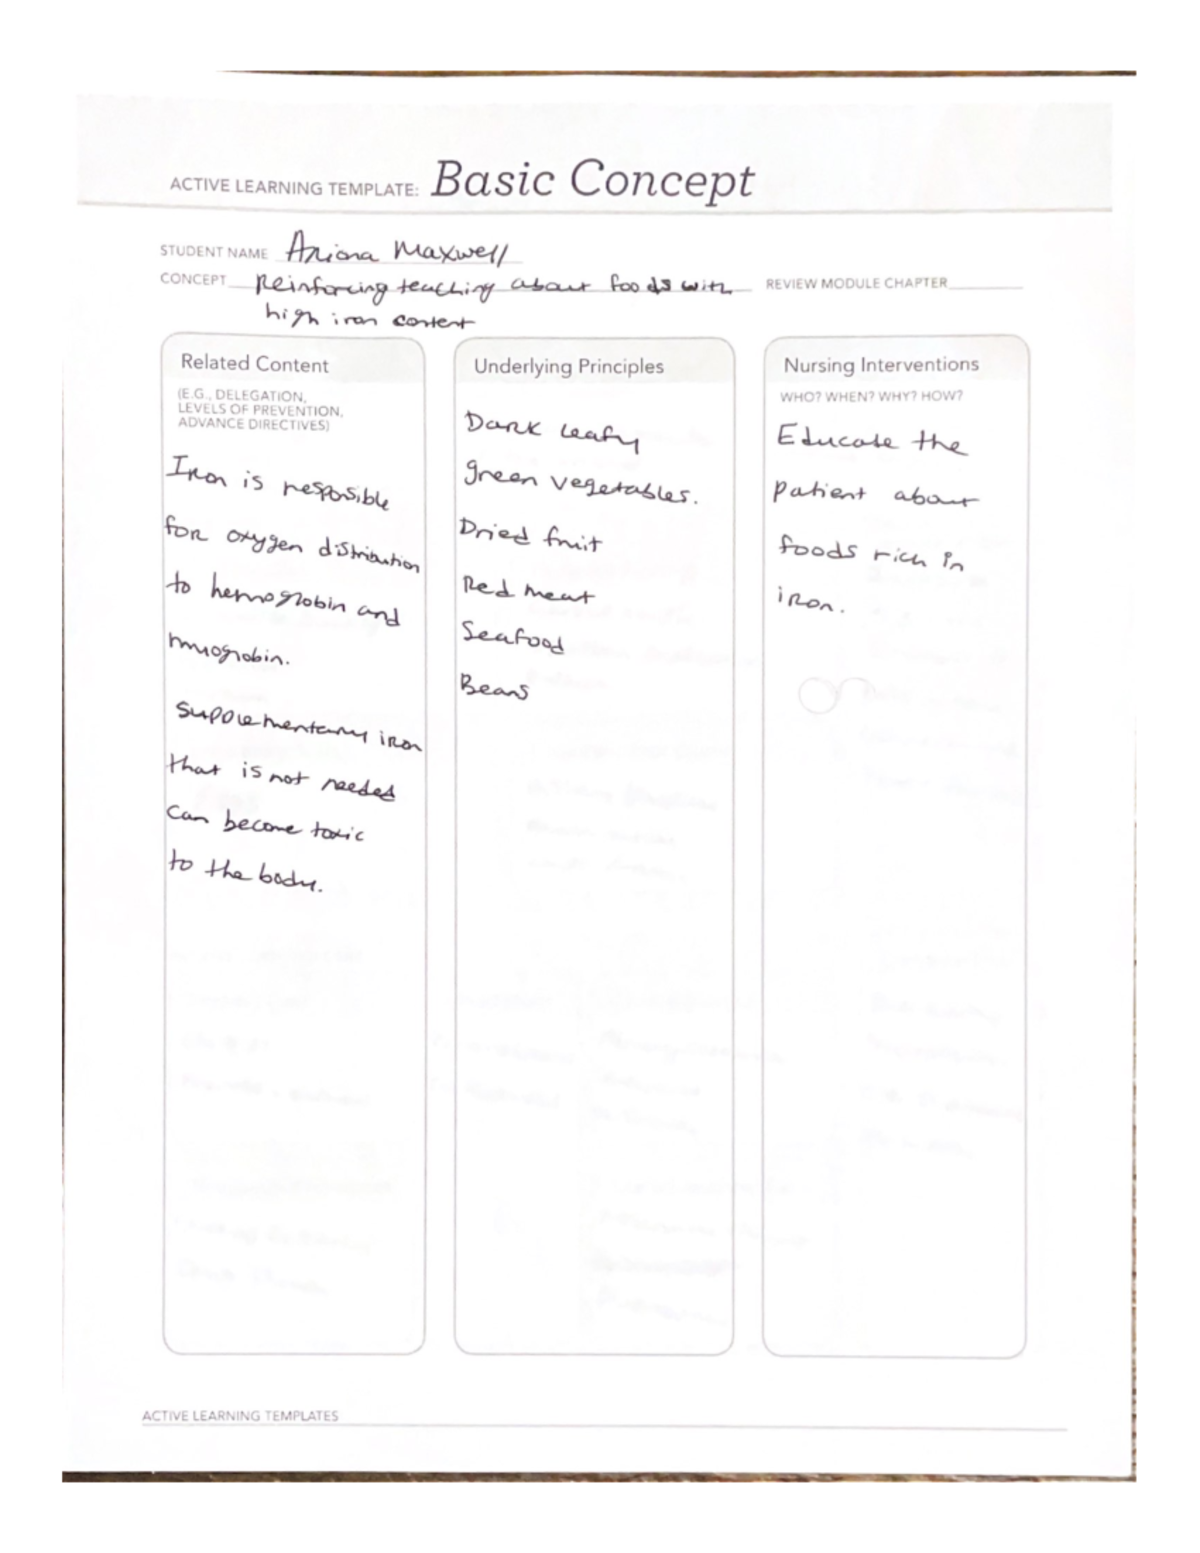 ACTIVE LEARNING TEMPLATE: Basic Concept
STUDENT NAME Ariana Maxwell
CONCEPT Reinforcing teaching about foods with
high iron content
REVIEW MODULE CHAPTER
Related Content
(E.G., DELEGATION,
LEVELS OF PREVENTION,
ADVANCE DIRECTIVES)
Iron is responsible
for oxygen distribution
to hemoglobin and
myoglobin.
supplementary iron
that is not needed
can become toxic
to the body.
Underlying Principles
Dark leafy
green vegetables.
Dried fruit
Red meat
Seafood
Beans
Nursing Interventions
WHO? WHEN? WHY? HOW?
Educate the
patient about
foods rich in
iron.
ACTIVE LEARNING TEMPLATES